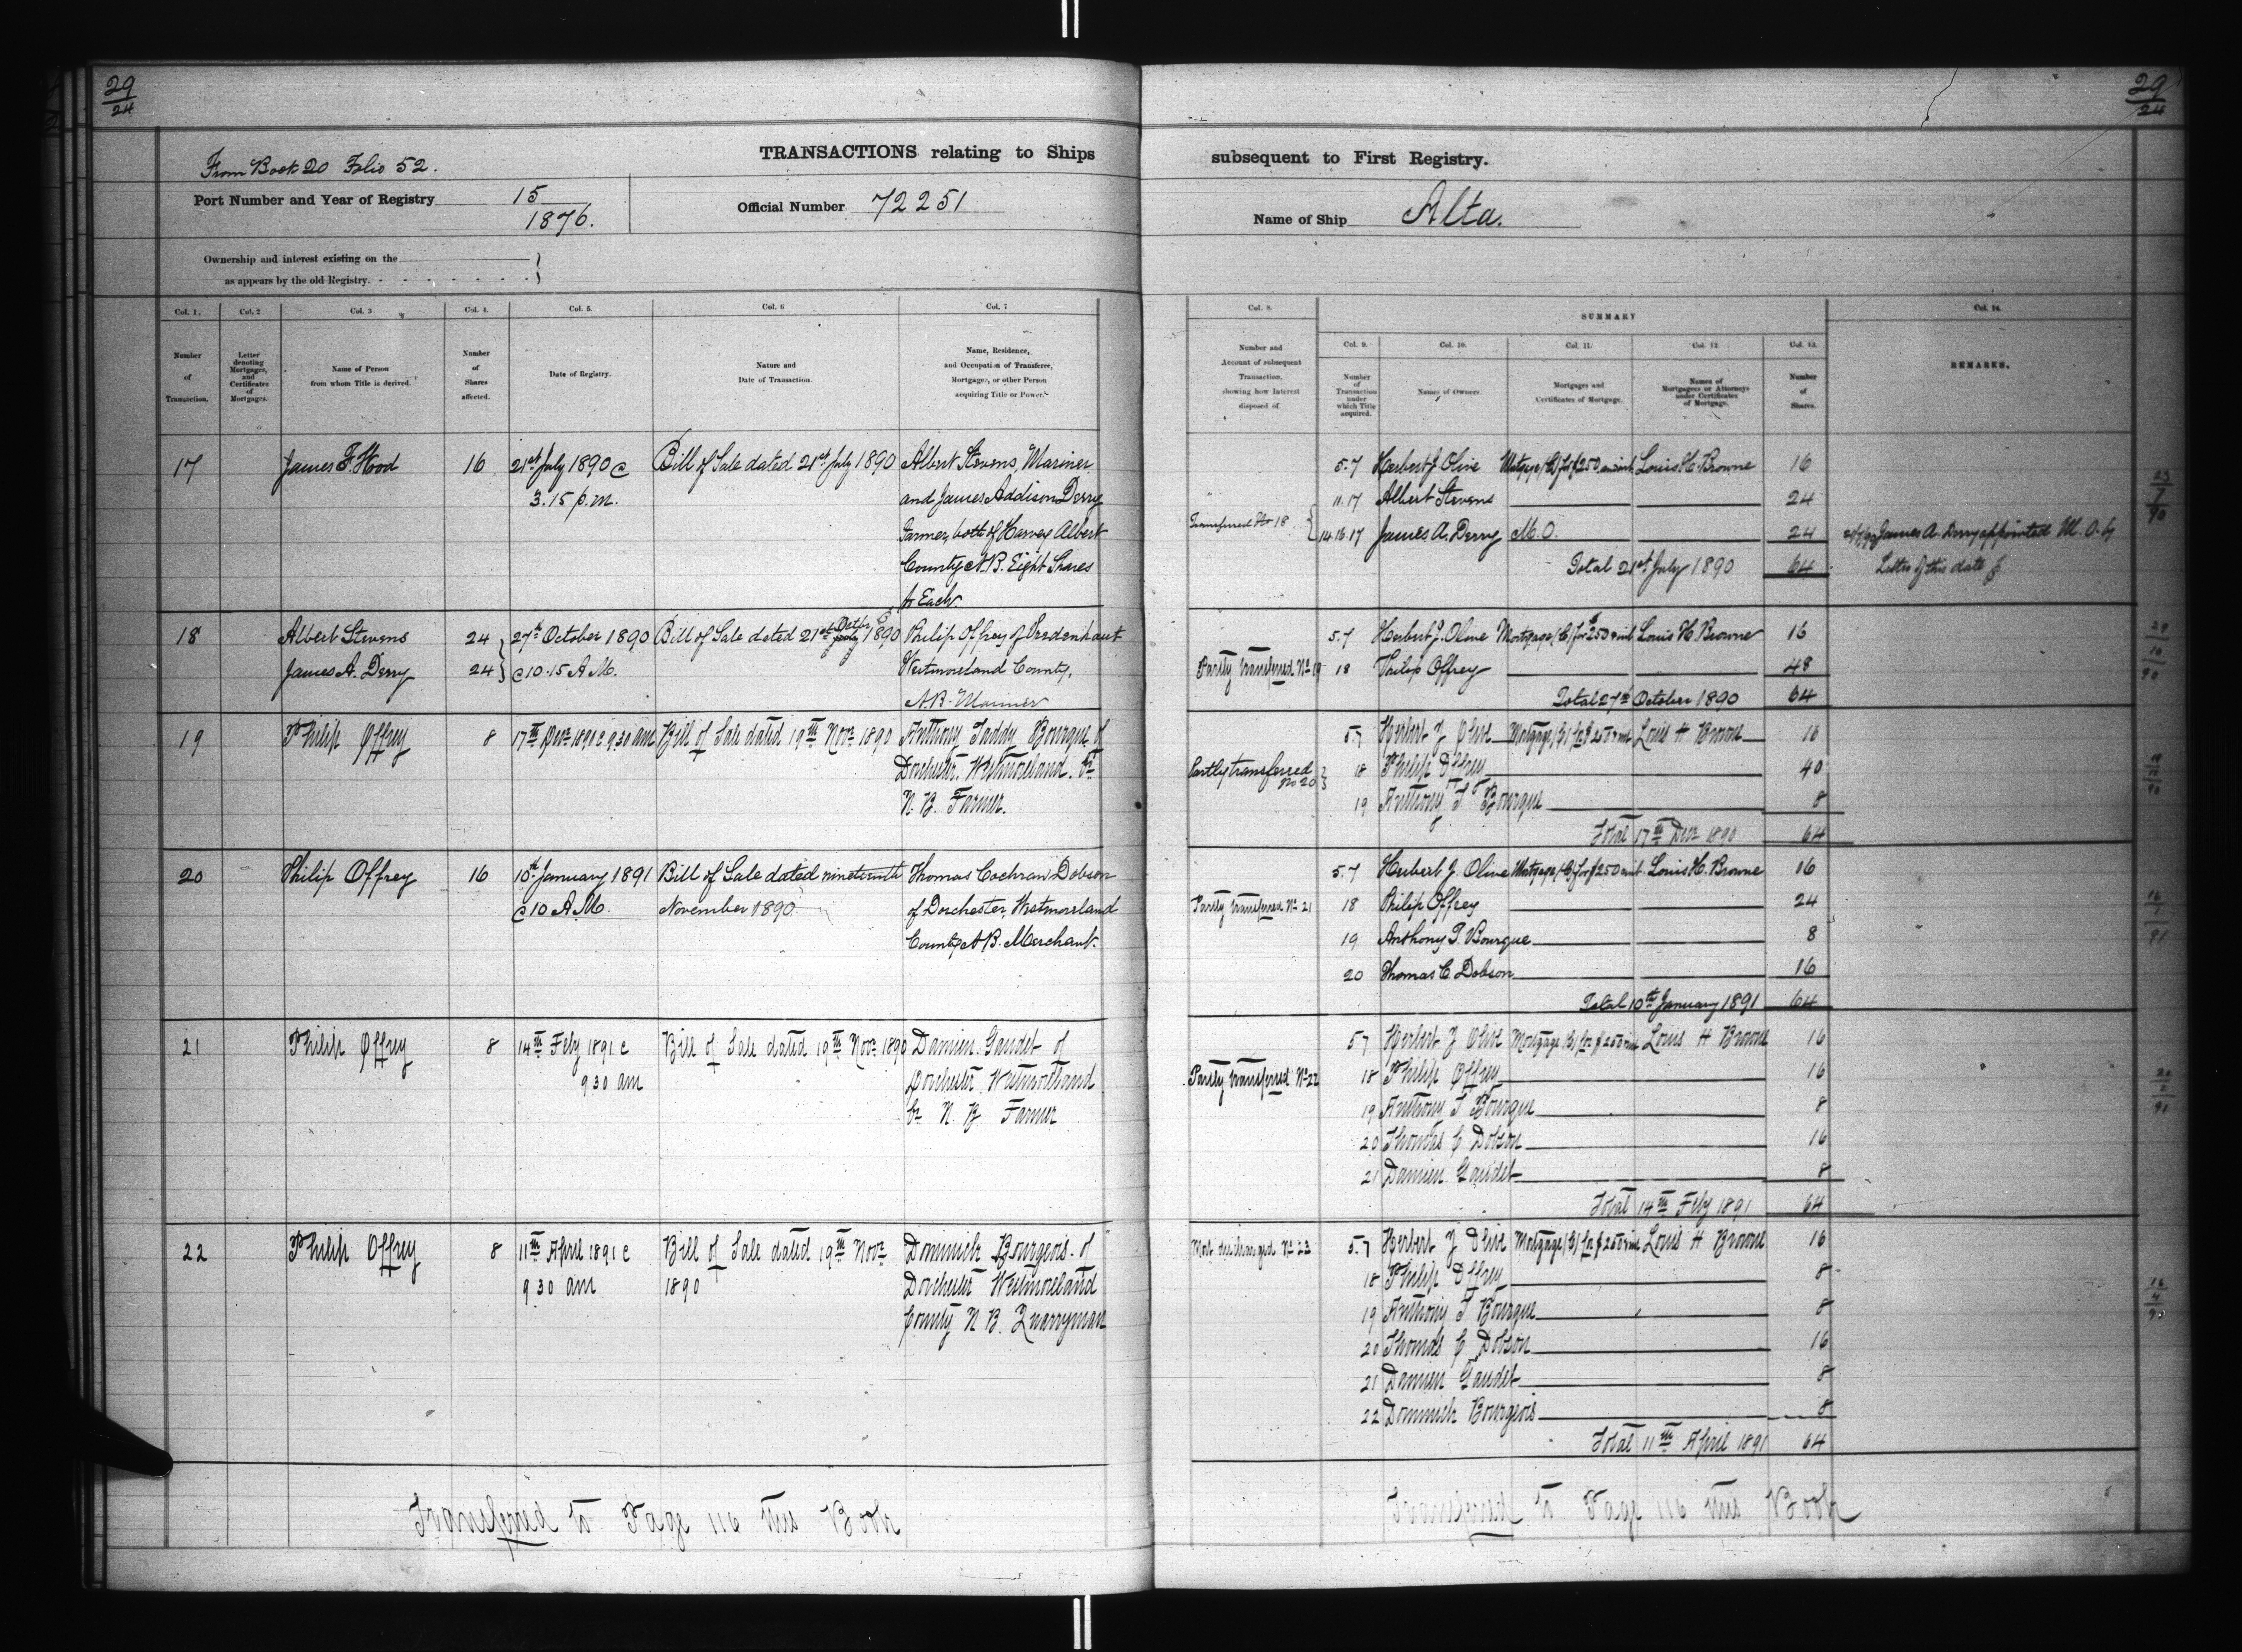 29
24
From Book 20 Folio 52.
TRANSACTIONS relating to Ships
Port Number and Year of Registry 15
1876.
Official Number 72251
Ownership and interest existing on the
as appears by the old Registry.
Col. 1. Col. 2 Col. 3 Col. 4. Col. 5. Col. 6 Col. 7
Number of Transaction.
Letter denoting Mortgages, and Certificates of Mortgages.
Name of Person from whom Title is derived.
Number of Shares affected.
Date of Registry.
Nature and Date of Transaction.
Name, Residence, and Occupation of Transferee, Mortgagee, or other Person acquiring Title or Power.
17 James F. Wood 16 21st July 1890 @ Bill of Sale dated 21st July 1890 Albert Stevens, Mariner
3.15 p.m. and James Addison Derry
Farmer, both of Harvey Albert
County N.B. Eight Shares
to Each
18 Albert Stevens 24 27th October 1890 Bill of Sale dated 21st July Octbr 1890 Philip Offrey of
James A. Derry 24 @ 10.15 A.M. Westmoreland County,
N.B. Mariner
19 Philip Offrey 8 17th Decr 1890 @ 9.30 am Bill of Sale dated 19th Novr 1890 Anthony Taddy Bourque of
Dorchester, Westmoreland Co
N. B. Farmer.
20 Philip Offrey 16 10th January 1891 Bill of Sale dated nineteenth Thomas Cochran Dobson
@ 10 A.M. November 1890 of Dorchester, Westmoreland
County N.B. Merchant.
21 Philip Offrey 8 14th Feby 1891 @ Bill of Sale dated 19th Novr 1890 Damien Gaudet of
9 30 am Dorchester Westmoreland
Co N. B. Farmer
22 Philip Offrey 8 11th April 1891 @ Bill of Sale dated 19th Novr Dominick Bourgeois of
9 30 am 1890 Dorchester Westmoreland
County N B. Quarryman
Transferred to Page 116 this Book
29
24
subsequent to First Registry.
Name of Ship Alta.
Col. 8. SUMMARY Col. 14.
Col. 9. Col. 10. Col. 11. Col. 12 Col. 13.
Number and Account of subsequent Transaction, showing how Interest disposed of.
Number of Transaction under which Title acquired.
Names of Owners.
Mortgages and Certificates of Mortgage.
Names of Mortgagees or Attorneys under Certificates of Mortgage.
Number of Shares.
REMARKS.
5.7 Herbert J. Olive Mortgage (B) for $250 & int Louis H. Browne 16
11.17 Albert Stevens 24
Transferred No 18 14.16.17 James A. Derry M.O. 24 James A. Derry appointed M.O. by
Total 21st July 1890 64 Letter of this date
5.7 Herbert J. Olive Mortgage (B) for $250 & int Louis H. Browne 16
Partly Transferred No 19 18 Philip Offrey 48
Total 27th October 1890 64
5.7 Herbert J Olive Mortgage (B) for $250 & int Louis H Browne 16
Partly transferred 18 Philip Offrey 40
No 20
19 Anthony T Bourque 8
Total 17th Decr 1890 64
5.7 Herbert J. Olive Mortgage (B) for $250 & int Louis H. Browne 16
Partly Transferred No 21 18 Philip Offrey 24
19 Anthony T. Bourque 8
20 Thomas C. Dobson 16
Total 10th January 1891 64
5 7 Herbert J Olive Mortgage (B) for $250 & int Louis H Browne 16
Partly Transferred No 22 18 Philip Offrey 16
19 Anthony T Bourque 8
20 Thomas C Dobson 16
21 Damien Gaudet 8
Total 14th Feby 1891 64
Mort discharged No 23 5.7 Herbert J Olive Mortgage (B) for $250 & int Louis H Browne 16
18 Philip Offrey 8
19 Anthony T Bourque 8
20 Thomas C Dobson 16
21 Damien Gaudet 8
22 Dominick Bourgeois 8
Total 11th April 1891 64
Transferred to Page 116 this Book